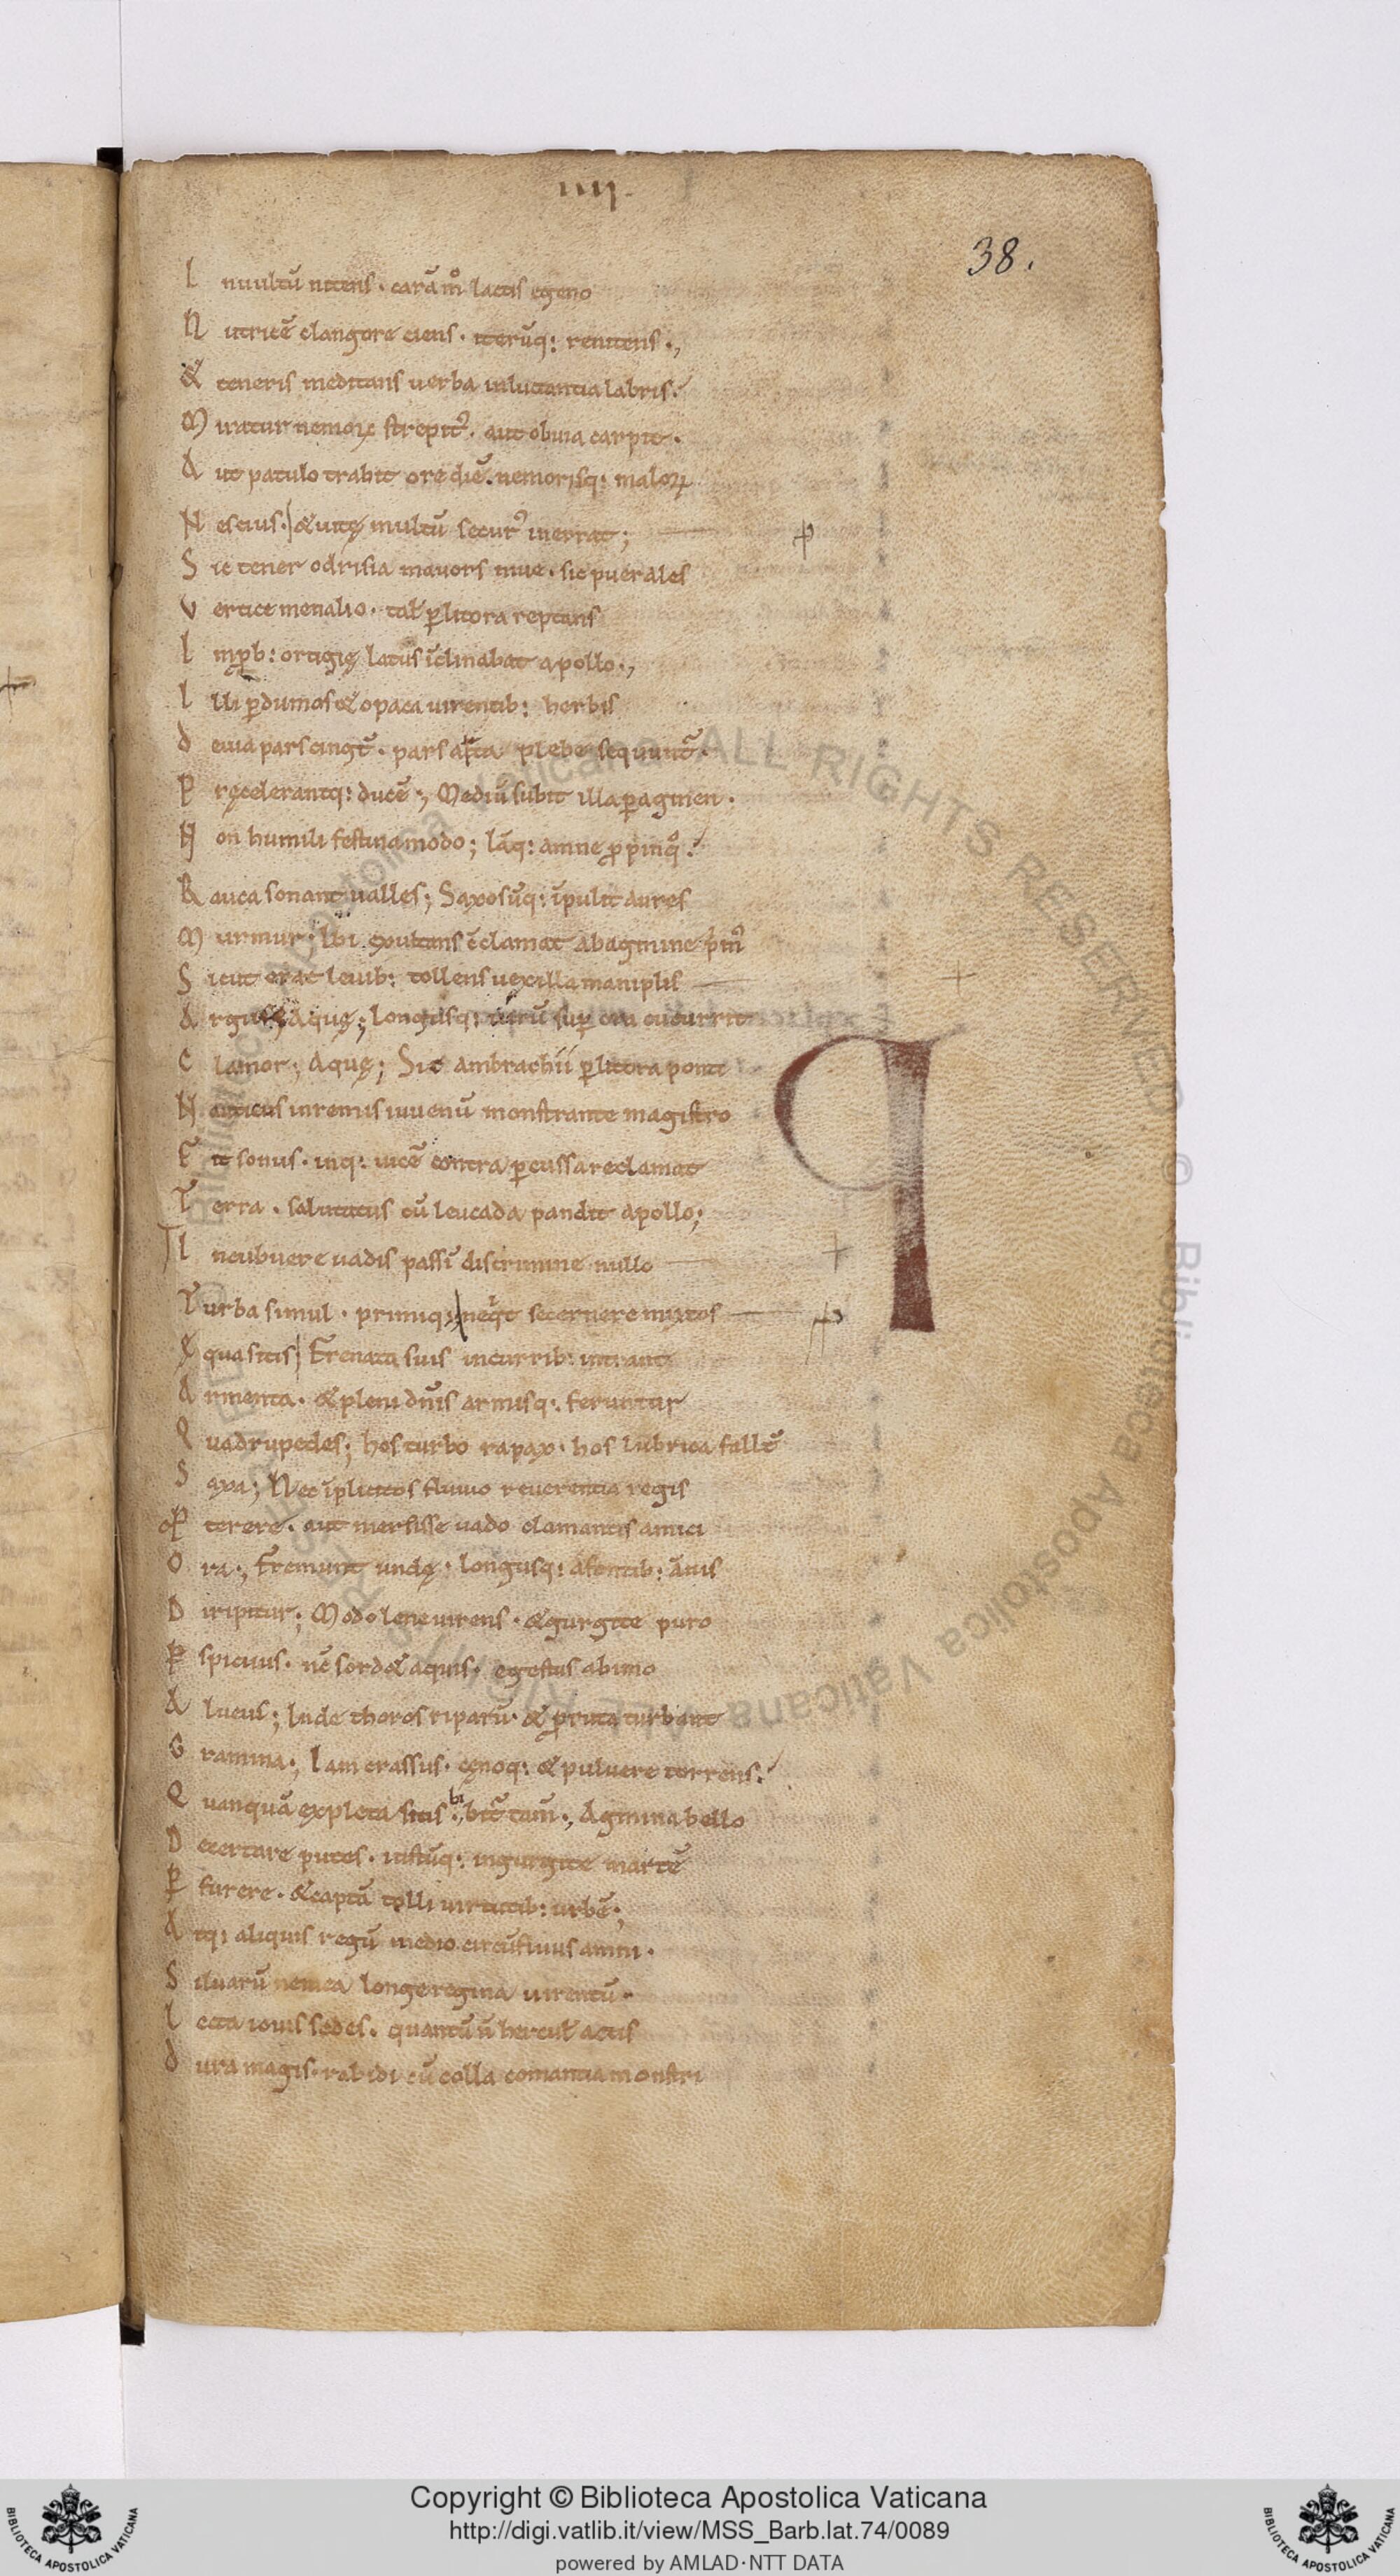 IIII.
38.
I nuultū nitens · carā m̊ lactis egeno
N utricē clangore ciens · iterūq: renitens .,
& teneris meditans uerba inluctantia labris.
M iratur nemorꝫ strepit᷒. aut obuia carpit .
A ut patulo trahit ore diē. nemorisq: maloꝝ
N escius . & uitę multū secur᷒ inerrat ;
S ic tener odrisia mauors niue . sic puer ales
V ertice menalio . tal̄ ꝑ litora reptans
I mꝓb: ortigię latus īclinabat apollo .,
I lli ꝑ dumos & opaca uirentib: herbis
D euia pars cingt̄ . pars arta plebe sequunt̄ .
P recelerantq: ducē ., Mediū subit illa ꝑ agmen .
N on humili festina modo ; Iāq: amne ꝓpinq̊ .
R auca sonant ualles ; Saxosūq: īpulit aures
M urmur . Ibi exultans c̄clamat ab agmine pm᷒
S icut erat leuib: tollens uexilla maniplis
A rgus Aquę ; longusq: uirū suꝑ ora cucurrit
C lamor ; Aquę ; Sic ambrachii ꝑ litora ponti
N auticus in remis iuuenū monstrante magistro
F it sonus . inq: uicē contra ꝑcussa reclamat
T erra . salutatus cū leucada pandit apollo ;
I ncubuere uadis passī discrimine nullo
T urba simul . primiq; neqt secernere mixtos
Ę qua sitis Frenata suis incurrib: intrant
A rmenta . & pleni dn̄is armisq: feruntur
Q uadrupedes ; hos turbo rapax . hos lubrica fallt̄
S axa ; Nec īplicitos fluuio reuerentia regis
P terere . aut mersisse uado clamantis amici
O ra ., Fremunt undę . longusq: afontib: ānis
D iripitur ; Modo lene uirens . & gurgite puro
P spicuus . nc̄ sord& aquis . egestus ab imo
A lueus ; Inde thoros riparū . & ꝓruta turbant
G ramina ., Iam crassus . cęnoq: & puluere torrens .
Q uanquā expleta sitis . bibit̄ tam̄ ., Agmina bello
D ecertare putes . iustūq: in gurgite martē
P furere . & captā tolli uirtutib: urbē .,
A tq: aliquis regū medio circūfluus amni .
S iluarū nemea longe regina uirentū .
L ecta iouis sedes . quantū n̄ hercul̄ actis
D ura magis . rabidi cū colla comantia monstri
Copyright © Biblioteca Apostolica Vaticana
http://digi.vatlib.it/view/MSS_Barb.lat.74/0089
powered by AMLAD·NTT DATA